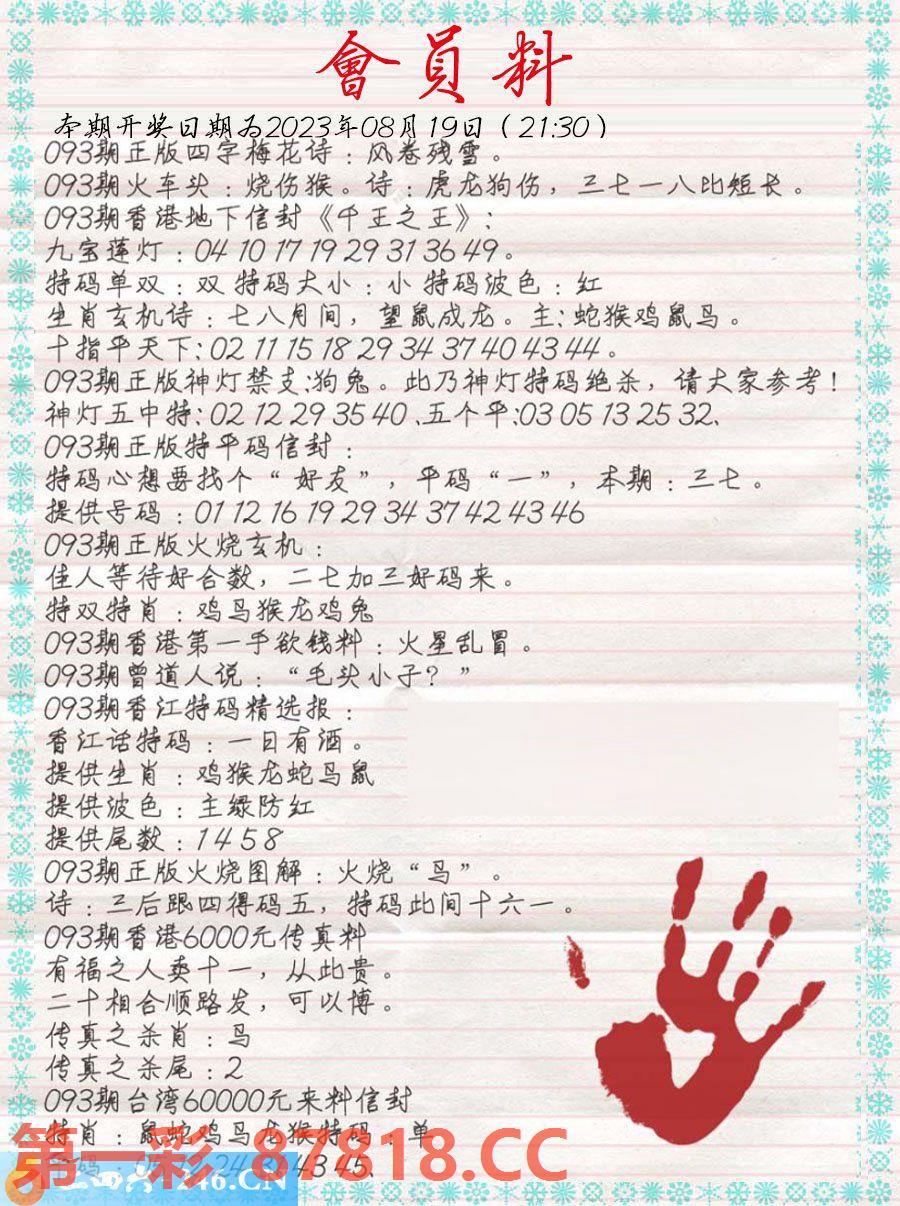 會員料
本期开奖日期为2023年08月19日（21:30）
093期正版四字梅花诗：风卷残雪。
093期火车头：烧伤猴。诗：虎龙狗伤，三七一八比短长。
093期香港地下信封《千王之王》：
九宝莲灯：04 10 17 19 29 31 36 49。
特码单双：双 特码大小：小 特码波色：红
生肖玄机诗：七八月间，望鼠成龙。主：蛇猴鸡鼠马。
十指平天下：02 11 15 18 29 34 37 40 43 44。
093期正版神灯禁支：狗兔。此乃神灯特码绝杀，请大家参考！
神灯五中特：02 12 29 35 40、五个平：03 05 13 25 32、
093期正版特平码信封：
特码心想要找个“好友”，平码“一”，本期：三七。
提供号码：01 12 16 19 29 34 37 42 43 46
093期正版火烧玄机：
佳人等待好合数，二七加三好码来。
特双特肖：鸡马猴龙鸡兔
093期香港第一手欲钱料：火星乱冒。
093期曾道人说：“毛头小子？”
093期香江特码精选报：
香江话特码：一日有酒。
提供生肖：鸡猴龙蛇马鼠
提供波色：主绿防红
提供尾数：1 4 5 8
093期正版火烧图解：火烧“马”。
诗：三后跟四得码五，特码此间十六一。
093期香港6000元传真料
有福之人卖十一，从此贵。
二十相合顺路发，可以博。
传真之杀肖：马
传真之杀尾：2
093期台湾60000元来料信封
特肖：鼠蛇鸡马龙猴特码：单
第一彩 87818.CC
24 43 45、
246.CN